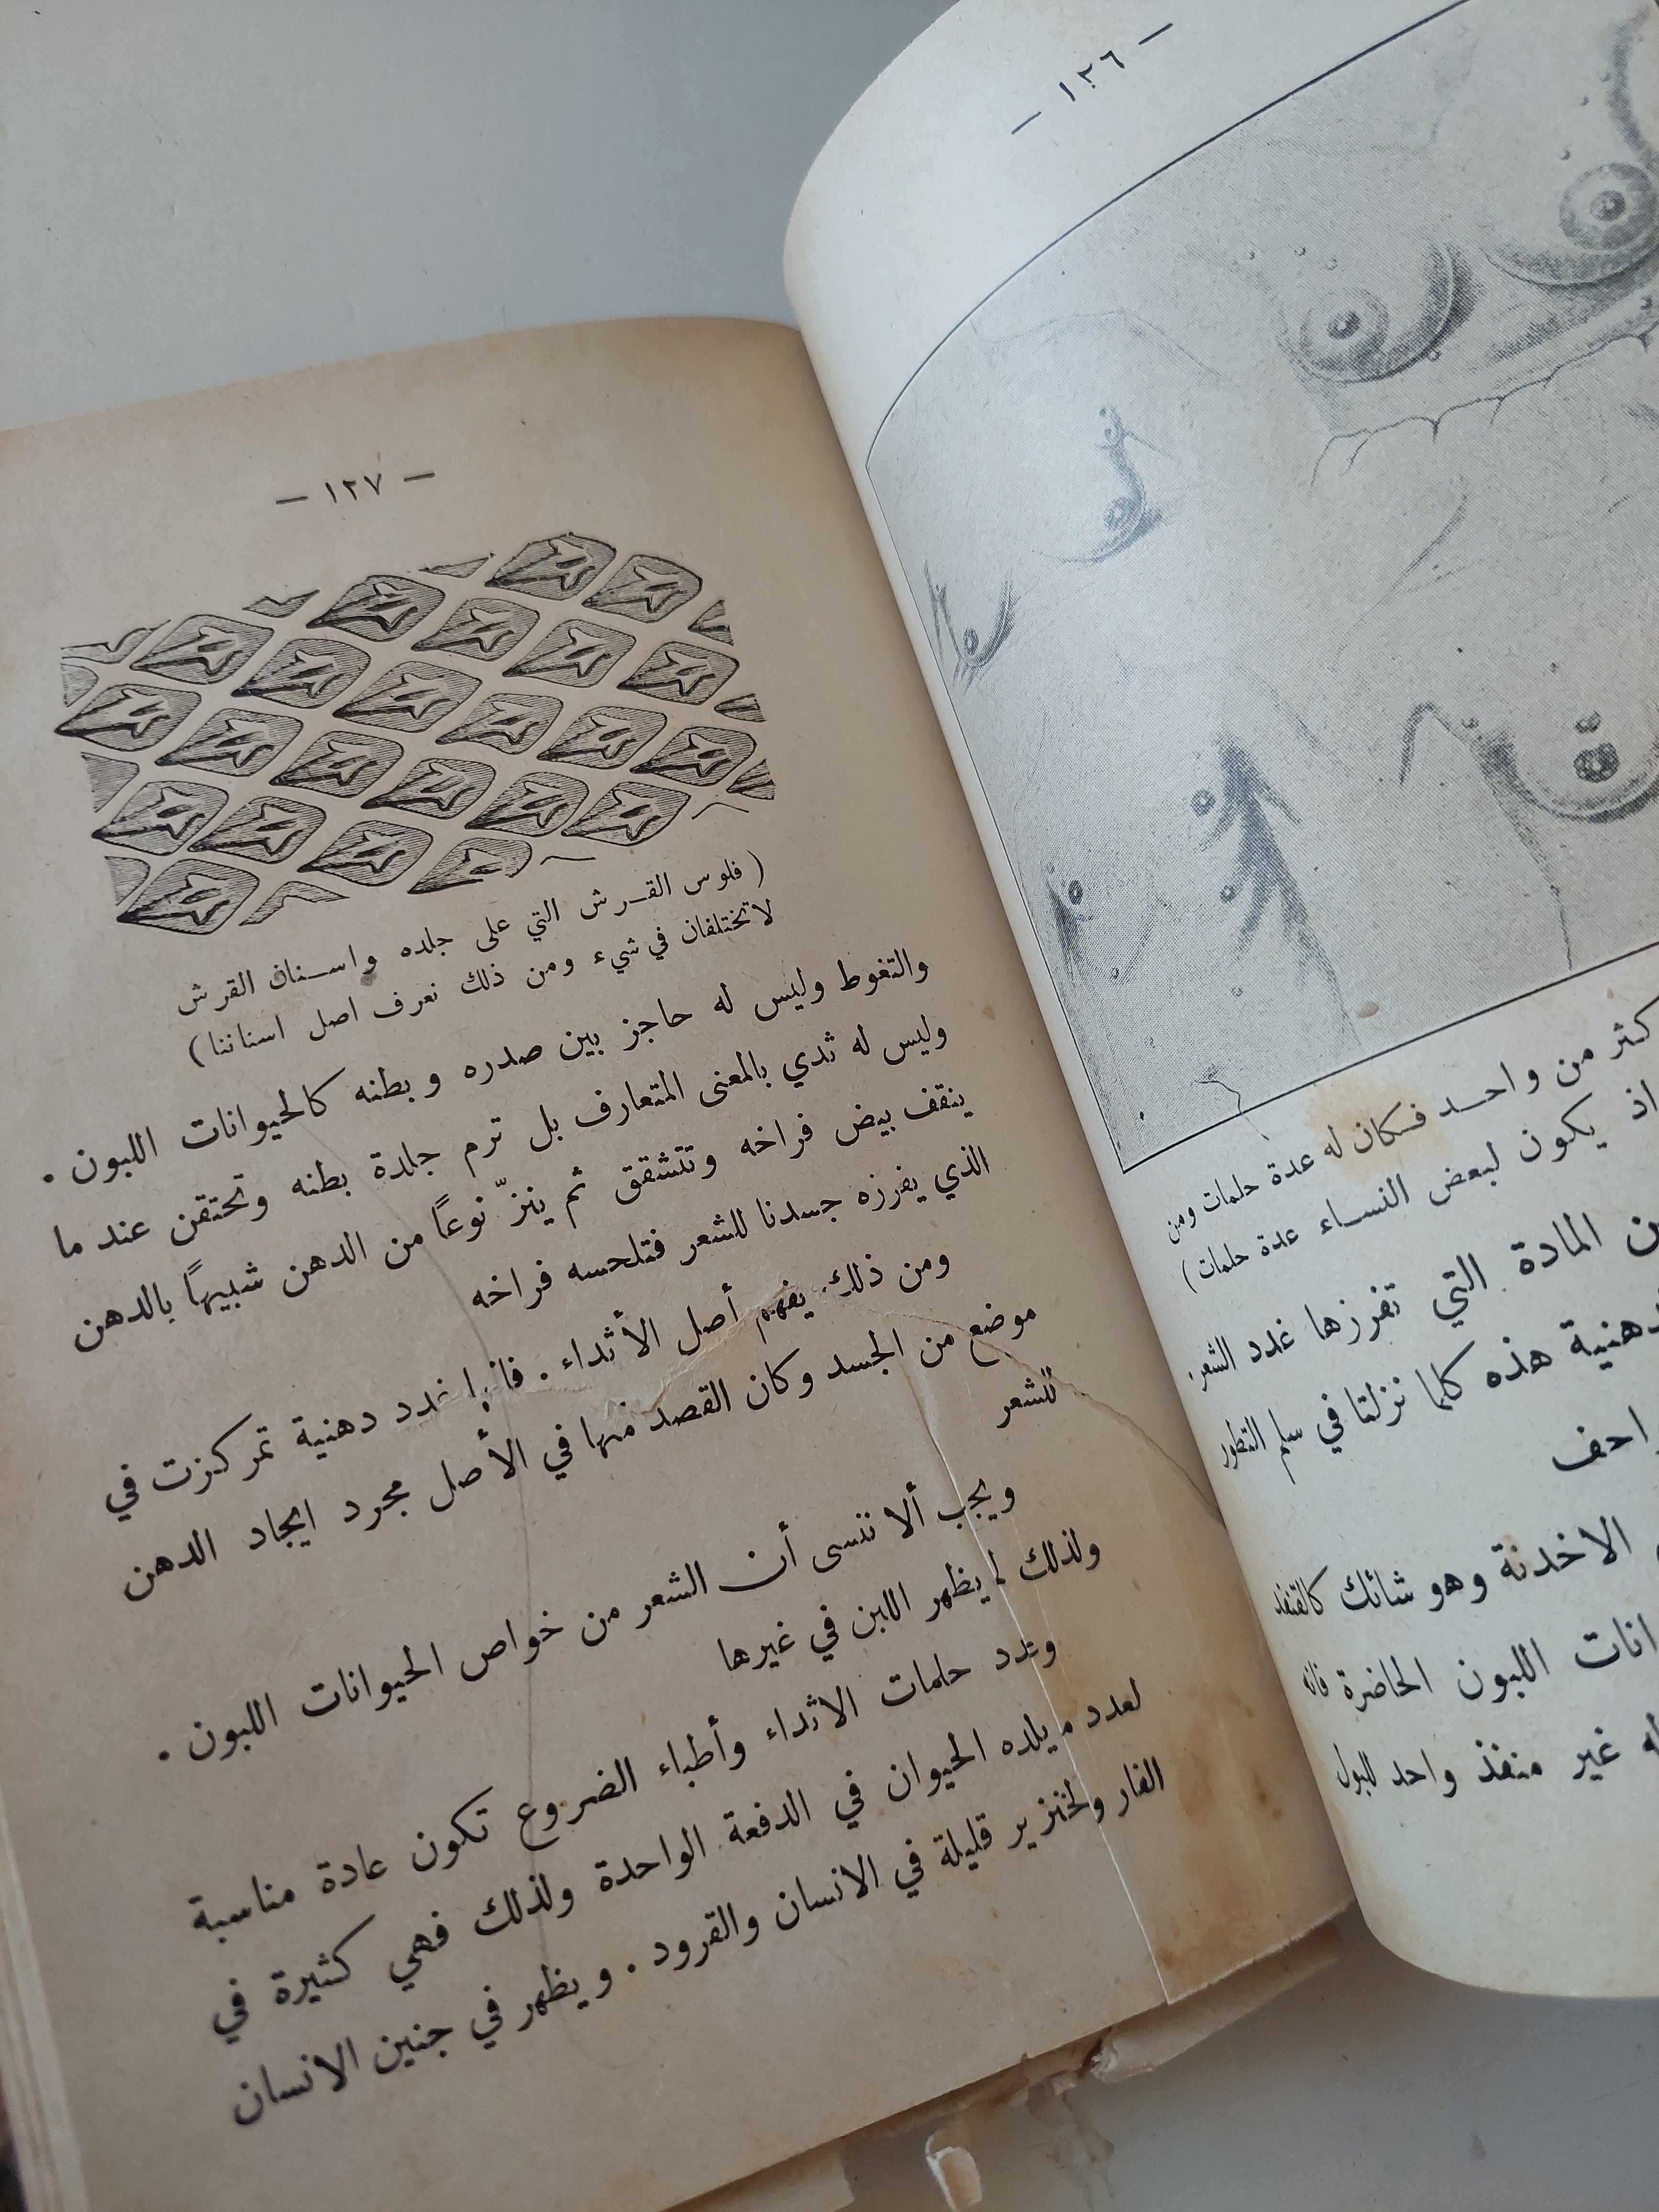 — ١٢٦ —
كثر من واحد فكان له عدة حلمات ومن
اذ يكون لبعض النساء عدة حلمات )
المادة التي تفرزها غدد الشعر.
هذه كلما نزلنا في سلم التطور
الاخدنة وهو شائك كالقنفذ
اللبون الحاضرة فانه
غير منفذ واحد للبول
— ١٢٧ —
( فلوس القرش التي على جلده واسنان القرش
لا تختلفان في شيء ومن ذلك نعرف اصل اسناننا )
والتغوط وليس له حاجز بين صدره وبطنه كالحيوانات اللبون .
وليس له ثدي بالمعنى المتعارف بل ترم جلدة بطنه وتحتقن عند ما
ينقف بيض فراخه وتتشقق ثم ينزّ نوعاً من الدهن شبيهاً بالدهن
الذي يفرزه جسدنا للشعر فتلحسه فراخه
ومن ذلك يفهم أصل الأثداء . فانها غدد دهنية تمركزت في
موضع من الجسد وكان القصد منها في الأصل مجرد ايجاد الدهن
للشعر
ويجب ألا ننسى أن الشعر من خواص الحيوانات اللبون .
ولذلك لم يظهر اللبن في غيرها
وعدد حلمات الاثداء وأطباء الضروع تكون عادة مناسبة
لعدد ما يلده الحيوان في الدفعة الواحدة ولذلك فهي كثيرة في
الفار والخنزير قليلة في الانسان والقرود . ويظهر في جنين الانسان